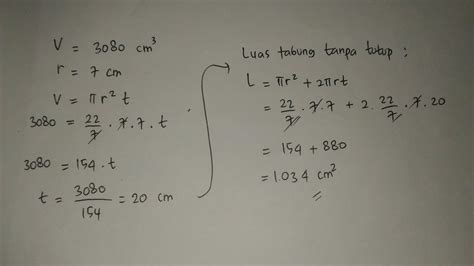 V = 3080 cm³
r = 7 cm
V = πr² t
3080 = 22/7 . 7 . 7 . t
3080 = 154 . t
t = 3080/154 = 20 cm
Luas tabung tanpa tutup :
L = πr² + 2πrt
= 22/7 . 7 . 7 + 2 . 22/7 . 7 . 20
= 154 + 880
= 1.034 cm²